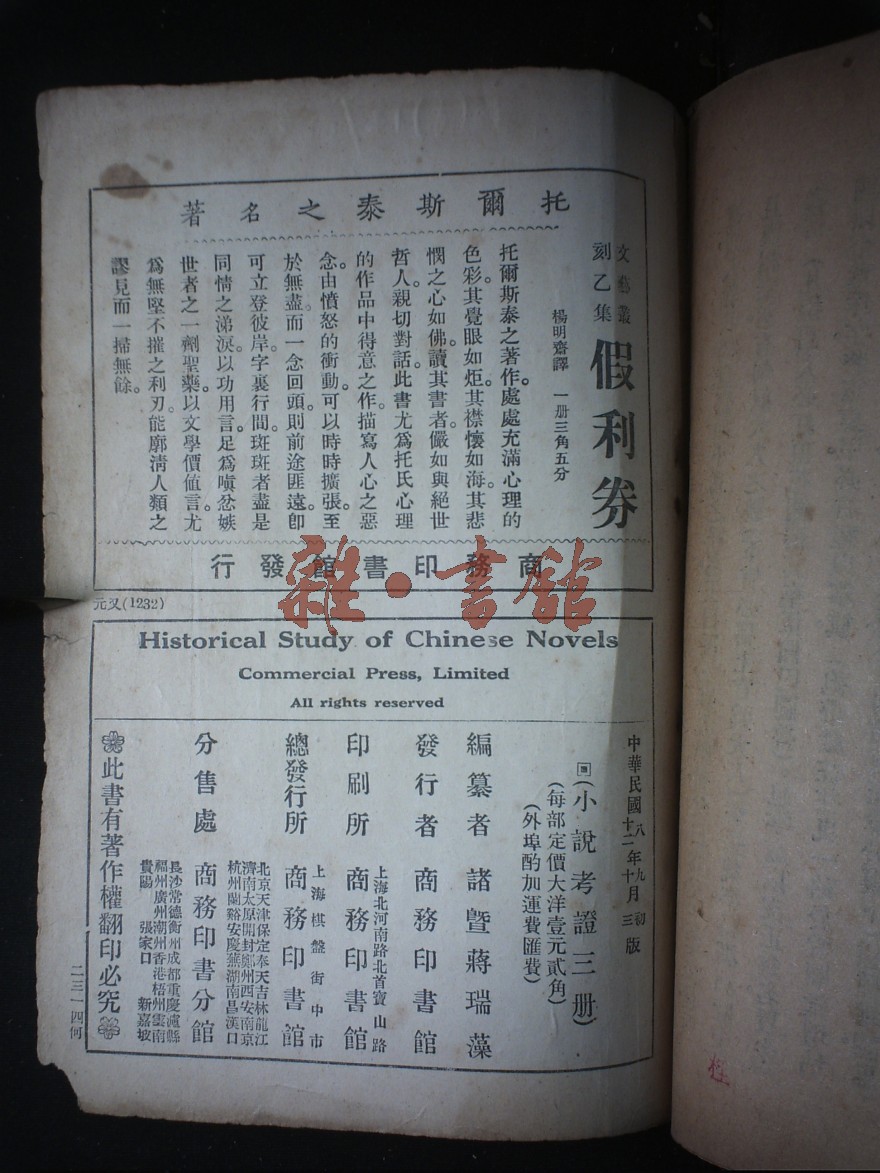 托爾斯泰之名著
文藝叢
刻乙集
假利券
楊明齋譯 一册三角五分
托爾斯泰之著作。處處充滿心理的
色彩。其覺眼如炬。其襟懷如海。其悲
憫之心如佛。讀其書者。儼如與絕世
哲人。親切對話。此書尤爲托氏心理
的作品中得意之作。描寫人心之惡
念。由憤怒的衝動。可以時時擴張。至
於無盡。而一念回頭。則前途匪遠。卽
可立登彼岸。字裏行間。斑斑者盡是
同情之涕淚。以功用言。足爲嗔忿嫉
世者之一劑聖藥。以文學價值言。尤
爲無堅不摧之利刃。能廓清人類之
謬見而一掃無餘。
商務印書館發行
元又(1232)
Historical Study of Chinese Novels
Commercial Press, Limited
All rights reserved
中華民國八年九月初版
中華民國十二年十月三版
(小說考證三册)
(每部定價大洋壹元貳角)
(外埠酌加運費匯費)
編纂者 諸暨蔣瑞藻
發行者 商務印書館
印刷所 上海北河南路北首寶山路 商務印書館
總發行所 上海棋盤街中市 商務印書館
分售處 商務印書分館
北京天津保定奉天吉林龍江
濟南太原開封鄭州西安南京
杭州蘭谿安慶蕪湖南昌漢口
長沙常德衡州成都重慶瀘縣
福州廣州潮州香港梧州雲南
貴陽 張家口 新嘉坡
此書有著作權翻印必究
二三一四何
雜·書館